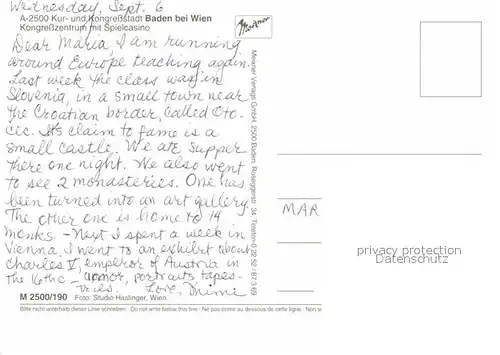 Wednesday, Sept. 6
A-2500 Kur- und Kongreßstadt Baden bei Wien
Kongreßzentrum mit Spielcasino
Dear Maria, I am running
around Europe teaching again.
Last week the class was in
Slovenia, in a small town near
the Croatian border, called Oto-
cec. It's claim to fame is a
small castle. We ate supper
there one night. We also went
to see 2 monasteries. One has
been turned into an art gallery.
The other one is home to 14
monks - Next I spent a week in
Vienna. I went to an exhibit about
Charles V, emperor of Austria in
the 16th c - armor, portraits, tapes-
tries. Love, Mimi
M 2500/190 Foto: Studio Haslinger, Wien.
Bitte nicht unterhalb dieser Linie schreiben · Do not write below this line · Ne pas écrire au dessous de cette ligne · Non s
Meixner
Meixner Verlags GmbH. 2500 Baden, Roseggerstr. 34, Telefon 0 22 52 / 87 3 69
MAR
privacy protection
Datenschutz